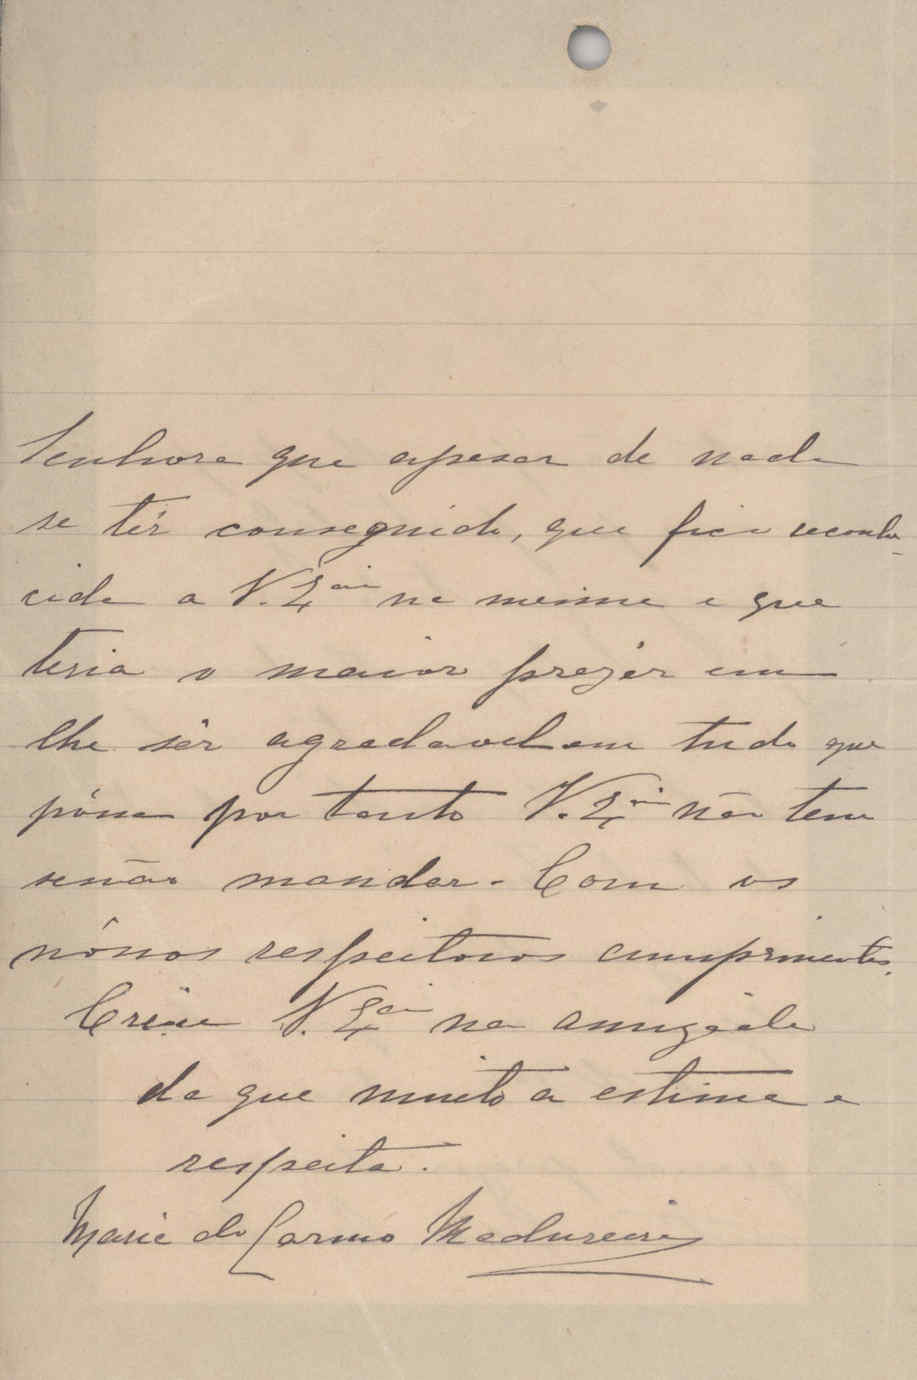 Senhora que apesar de nada
se têr conseguido, que fico reconhe-
cida a V. Ex.cia na mesma e que
teria o maior prazêr em
lhe sêr agradavel em tudo que
póssa por tanto V. Ex.cia não tem
senão mandar. Com os
nóssos respeitosos cumprimentos.
Creia V. Ex.cia na amizade
da que muito a estima e
respeita.
Maria do Carmo Madureira